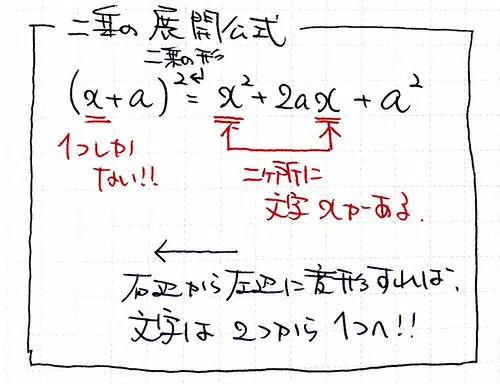 二乗の展開公式
二乗の形
(x+a)² = x² + 2ax + a²
1つしか
ない!!
二ヶ所に
文字xがある.
←
右辺から左辺に変形すれば、
文字は2つから1つへ!!